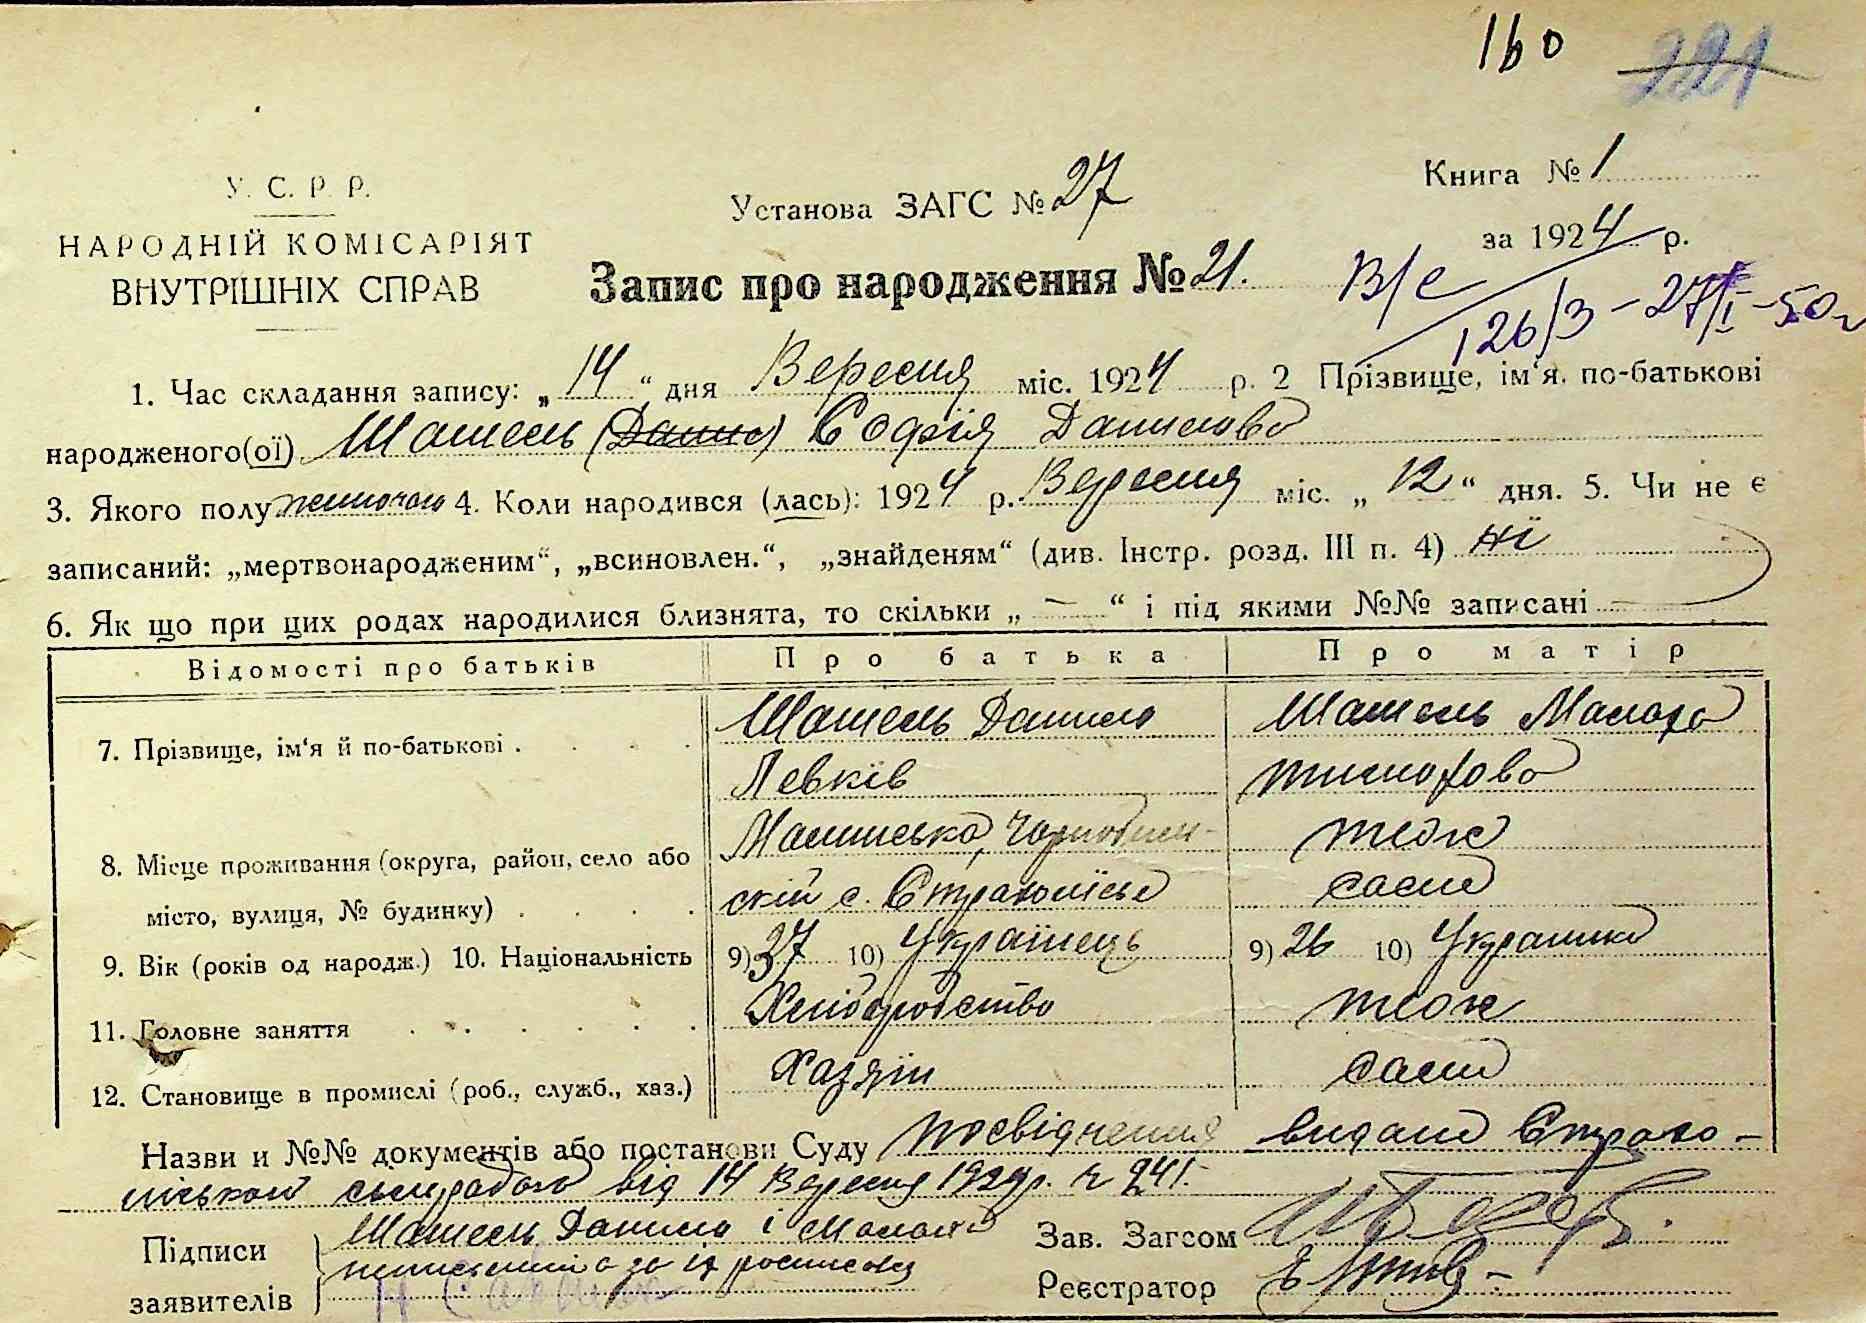 160 221
У. С. Р. Р.
НАРОДНІЙ КОМІСАРІЯТ
ВНУТРІШНІХ СПРАВ
Установа ЗАГС № 27
Книга № 1
за 1924 р.
Запис про народження № 21.
В/с 126/3 - 27/I - 50
1. Час складання запису: „14“ дня Вересня міс. 1924 р. 2 Прізвище, ім‘я. по-батькові
народженого(ої) Шатель (Данил) Софія Данилова
3. Якого полу жиночого 4. Коли народився (лась): 1924 р. Вересня міс. „12“ дня. 5. Чи не є
записаний: „мертвонародженим“, „всиновлен.“, „знайденям“ (див. Інстр. розд. III п. 4) Ні
6. Як що при цих родах народилися близнята, то скільки „ — “ і під якими №№ записані —
Відомості про батьків Про батька Про матір
7. Прізвище, ім‘я й по-батькові . Шатель Данило Шатель Малаха
Левків
8. Місце проживання (округа, район, село або Малинська, Чорнобиль- тож
місто, вулиця, № будинку) . скій с. Страхолісьє саме
9. Вік (років од народж.) 10. Національність 9) 37 10) Українець 9) 26 10) Украинка
11. Головне заняття Хліборобство тож
12. Становище в промислі (роб., служб., хаз.) Хазяїн саме
Назви и №№ документів або постанови Суду посвідчення видане Страхо-
ліською сільрадою від 14 Вересня 1924р. ч 241.
Підписи заявителів Шатель Данило і Малаха
неписьменні а за їх росписова
Зав. Загсом
Реєстратор